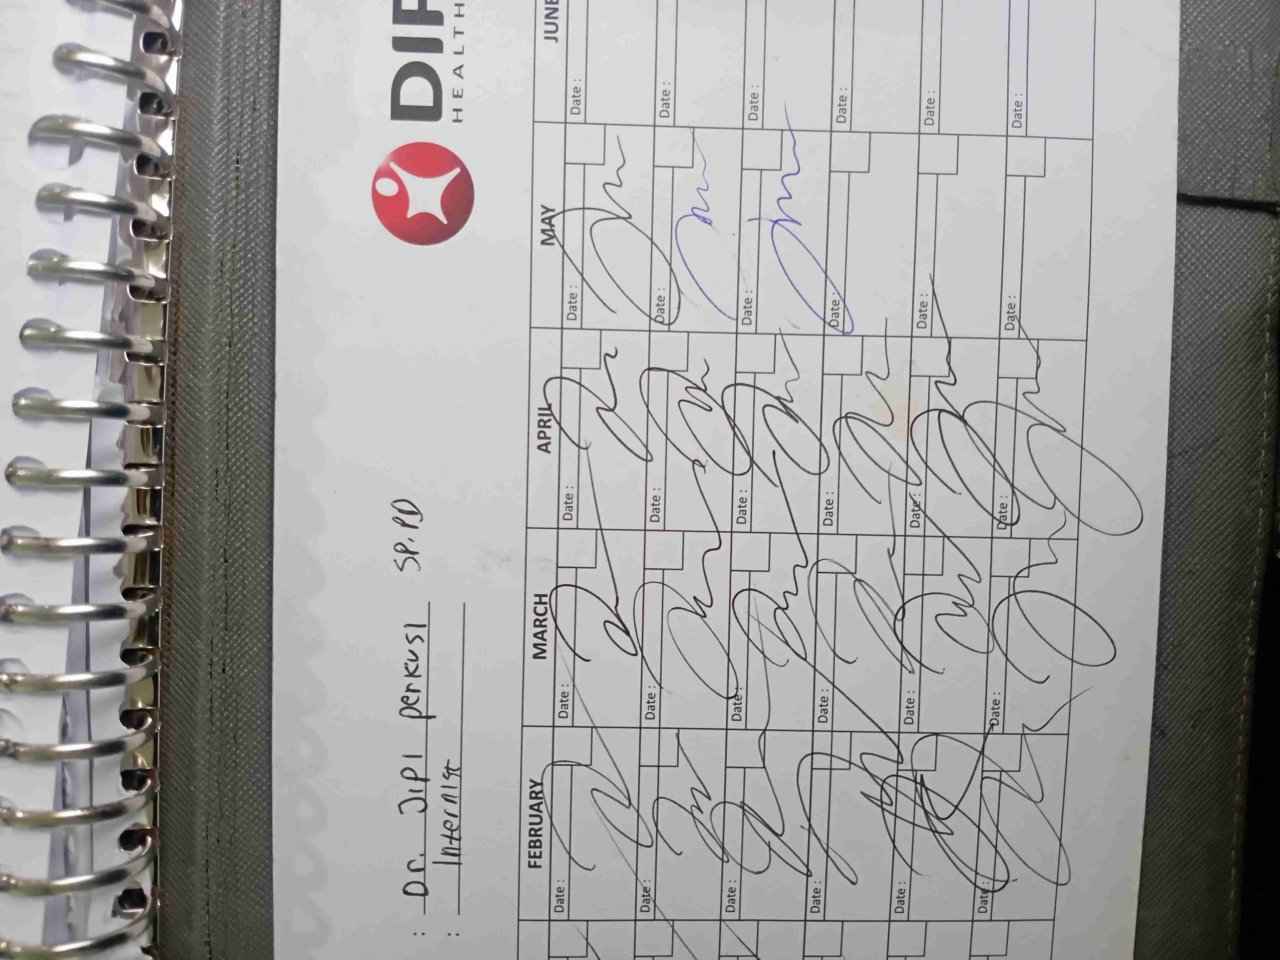 DIP
HEALTH
: Dr. JIPI perkusi SP.PD
: InternIst
FEBRUARY MARCH APRIL MAY JUNE
Date : Date : Date : Date : Date :
Date : Date : Date : Date : Date :
Date : Date : Date : Date : Date :
Date : Date : Date : Date : Date :
Date : Date : Date : Date : Date :
Date : Date : Date : Date : Date :